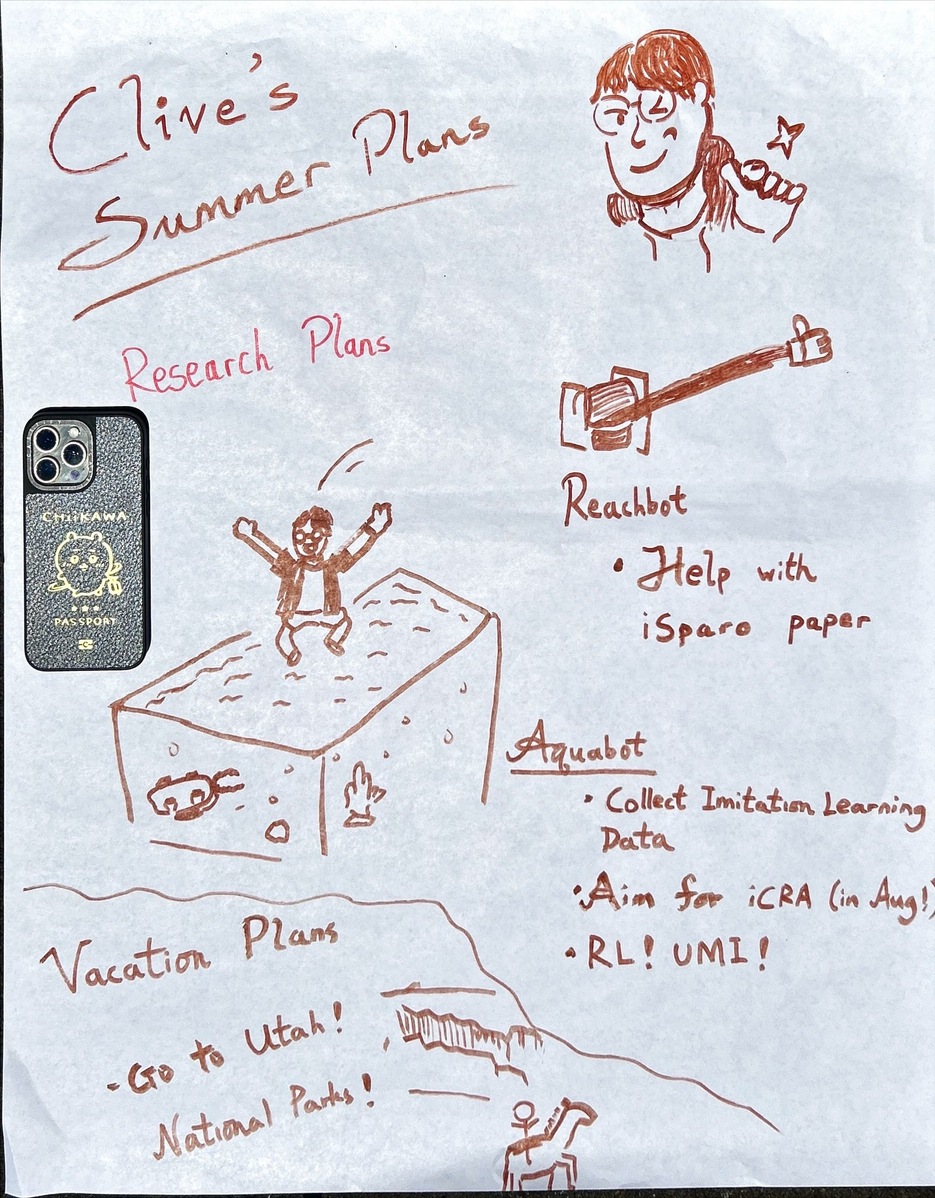 Clive's
Summer Plans
Research Plans
CHIIKAWA
PASSPORT
Reachbot
• Help with
iSparo paper
Aquabot
• Collect Imitation Learning
Data
• Aim for iCRA (in Aug!)
• RL! UMI!
Vacation Plans
- Go to Utah!
National Parks!